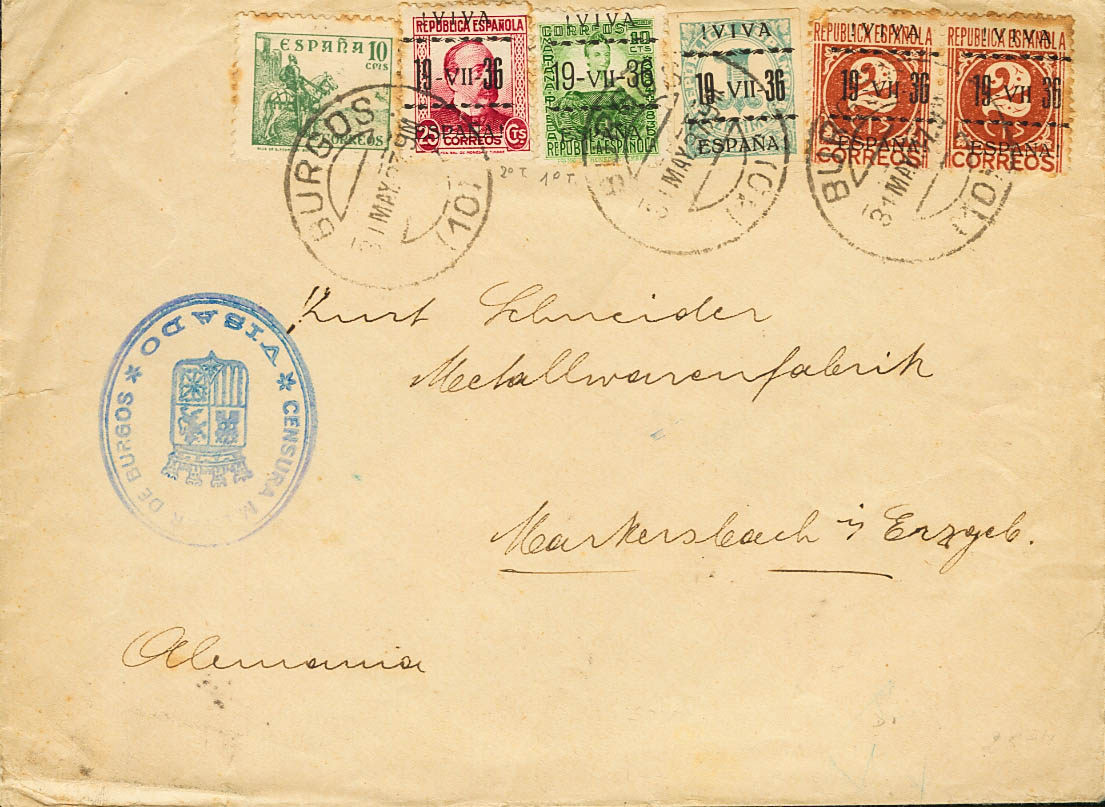 ESPAÑA 10 CTS
CORREOS
REPUBLICA ESPAÑOLA
¡VIVA
19-VII-36
ESPAÑA!
25 CTS
CORREOS
CORREOS
¡VIVA
10 CTS
19-VII-36
ESPAÑA!
REPUBLICA ESPAÑOLA
¡VIVA
19-VII-36
1
ESPAÑA!
REPUBLICA ESPAÑOLA
¡VIVA
19-VII-36
2 CTS
ESPAÑA!
CORREOS
REPUBLICA ESPAÑOLA
¡VIVA
19-VII-36
2 CTS
ESPAÑA!
CORREOS
BURGOS
31 MAY. 37
(10)
31 MAY. 37
BURGOS
31 MAY. 37
(10)
2º T. 1º T.
Kurt Schneider
Metallwarenfabrik
Markersbach i/ Erzgeb.
Alemania
* VISADO *
CENSURA DE BURGOS